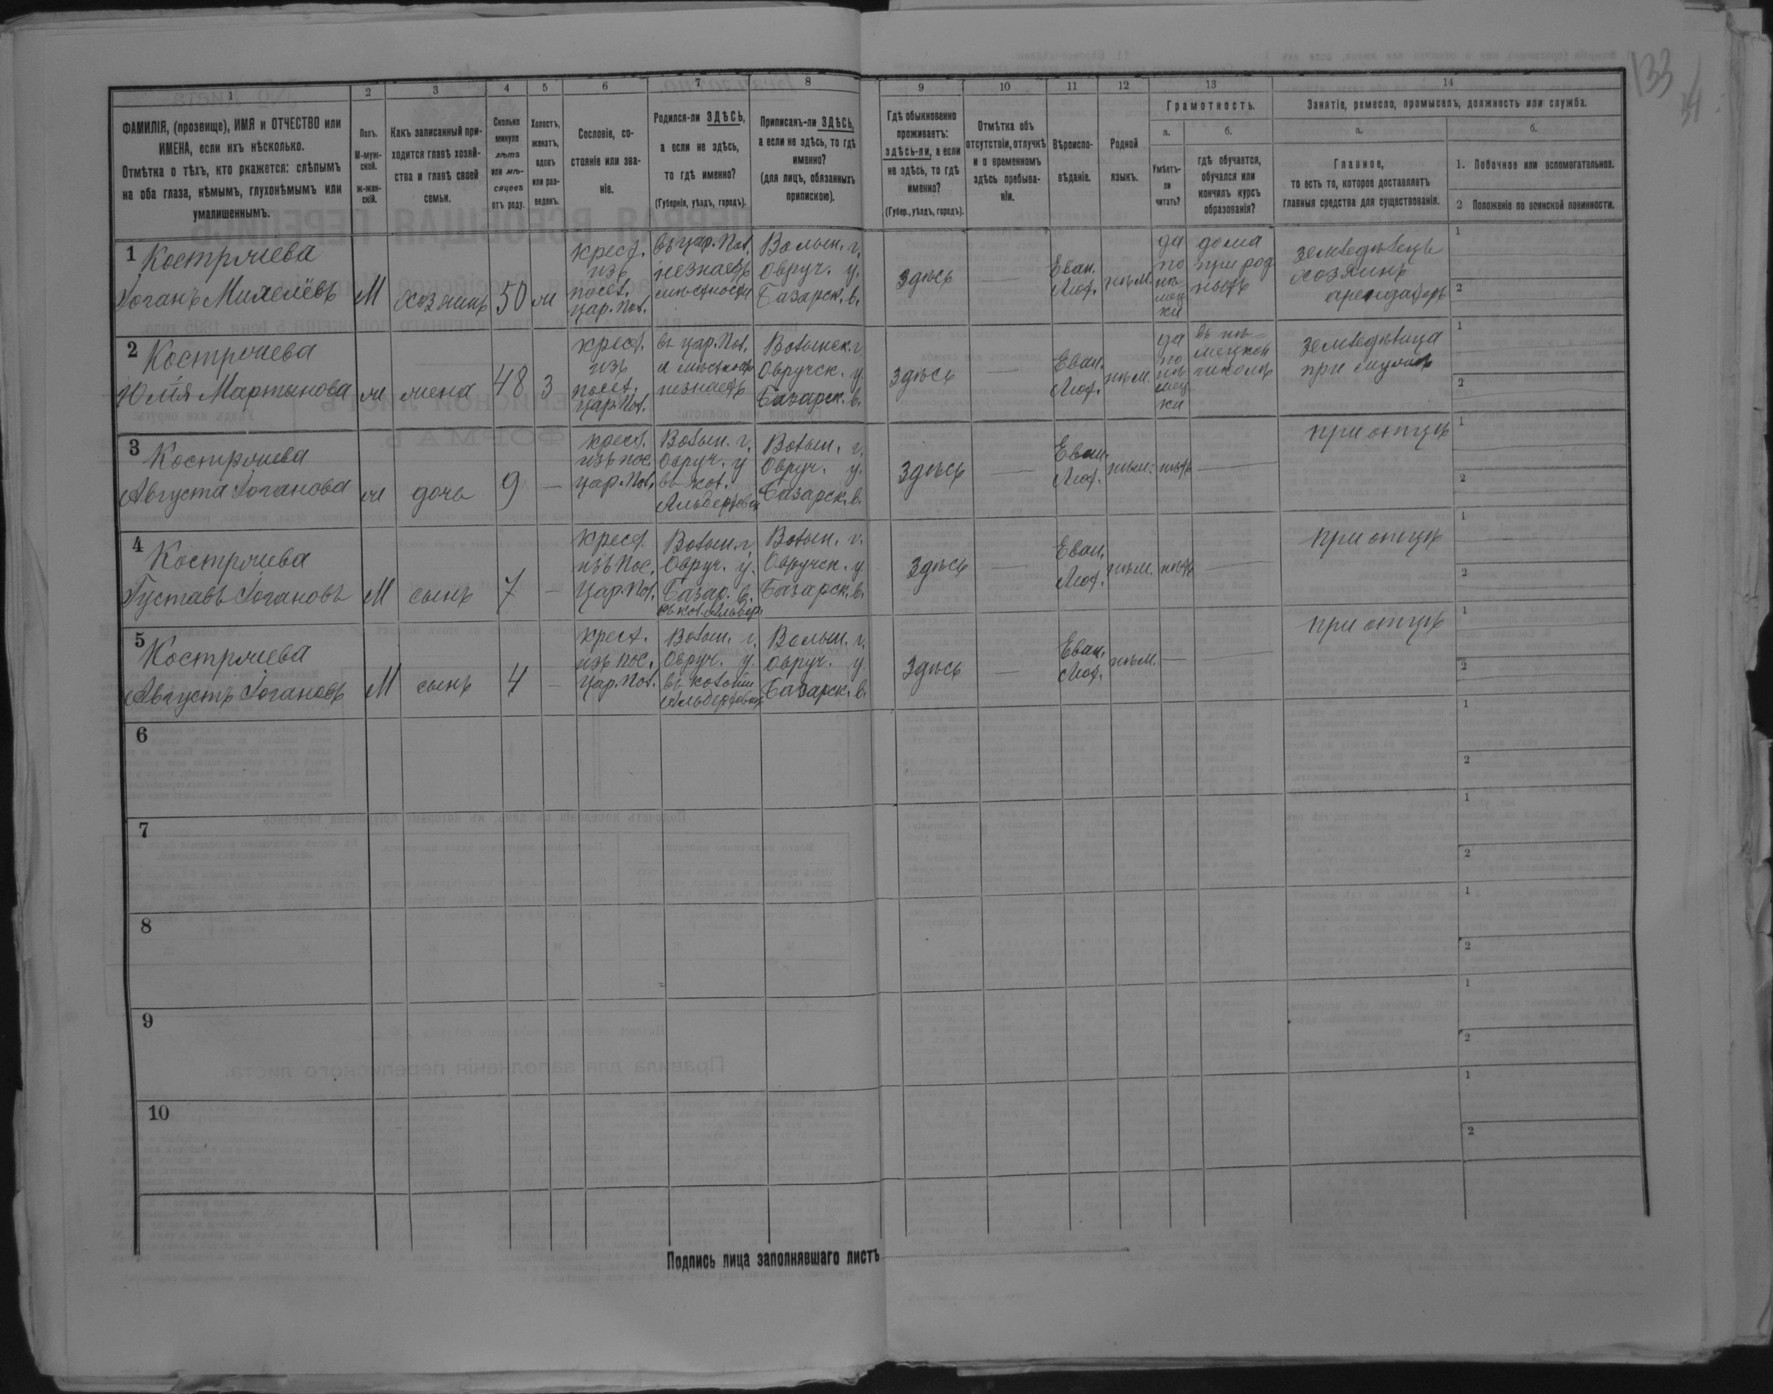 133
34
1
2
3
4
5
6
7
8
9
10
11
12
13
14
ФАМИЛІЯ, (прозвище), ИМЯ и ОТЧЕСТВО или
ИМЕНА, если ихъ нѣсколько.
Отмѣтка о тѣхъ, кто окажется: слѣпымъ
на оба глаза, нѣмымъ, глухонѣмымъ или
умалишеннымъ.
Полъ.
М-муж-
ской.
ж-жен-
скій.
Какъ записанный при-
ходится главѣ хозяй-
ства и главѣ своей
семьи.
Сколько
минуло
лѣтъ
или мѣ-
сяцевъ
отъ роду.
Холостъ,
женатъ,
вдовъ
или раз-
веденъ.
Сословіе, со-
стояніе или зва-
ніе.
Родился-ли ЗДѢСЬ,
а если не здѣсь,
то гдѣ именно?
(Губернія, уѣздъ, городъ).
Приписанъ-ли ЗДѢСЬ,
а если не здѣсь, то гдѣ
именно?
(для лицъ, обязанныхъ
припискою).
Гдѣ обыкновенно
проживаетъ:
здѣсь-ли, а если
не здѣсь, то гдѣ
именно?
(Губер., уѣздъ, городъ).
Отмѣтка объ
отсутствіи, отлучкѣ
и о временномъ
здѣсь пребыва-
ніи.
Вѣроиспо-
вѣданіе.
Родной
языкъ.
Грамотность.
а.
б.
Умѣетъ-
ли
читать?
гдѣ обучается,
обучался или
кончилъ курсъ
образованія?
Занятіе, ремесло, промыселъ, должность или служба.
а.
б.
Главное,
то есть то, которое доставляетъ
главныя средства для существованія.
1. Побочное или вспомогательное.
2 Положеніе по воинской повинности.
1
Михелёвъ М хозяинъ 50 ж
крест.
изъ
посел.
цар. Пол.
въ цар. Пол.
незнаетъ
мѣстности
Волын. г.
Овруч. у.
Базарск. в.
здѣсь
—
Еван.
Лют.
нѣм.
да
по
нѣ-
мец
ки
дома
при род
земледѣлецъ
хозяинъ
арендаторъ
1
2
2
Юлія Мартынова ж жена 48 З
крест.
изъ
посел.
цар. Пол.
въ цар. Пол.
незнаетъ
Волынск. г.
Овручск. у.
Базарск. в.
здѣсь
—
Еван.
Лют.
нѣм.
да
по
нѣ
мец
ки
въ нѣ-
мецкой
школѣ
земледѣлица
при мужѣ
1
2
3
Августа Іоганова ж дочь 9 —
крест.
изъ пос.
цар. Пол.
Волын. г.
Овруч. у
въ кол.
Волын. г.
Овруч. у.
Базарск. в.
здѣсь
—
Еван.
Лют.
нѣм.
нѣтъ
—
при отцѣ
1
2
4
Густавъ Іогановъ М сынъ 7 —
крест.
изъ пос.
цар. Пол.
Волын. г.
Овруч. у.
Базар. в.
Волын. г.
Овручск. у
Базарск. в.
здѣсь
—
Еван.
Лют.
нѣм.
нѣтъ
—
при отцѣ
1
2
5
Августъ Іогановъ М сынъ 4 —
крест.
изъ пос.
цар. Пол.
Волын. г.
Овруч. у.
въ колоніи
Волын. г.
Овруч. у.
Базарск. в.
здѣсь
—
Еван.
Лют.
нѣм.
—
—
при отцѣ
1
2
6
1
2
7
1
2
8
1
2
9
1
2
10
1
2
Подпись лица заполнявшаго листъ